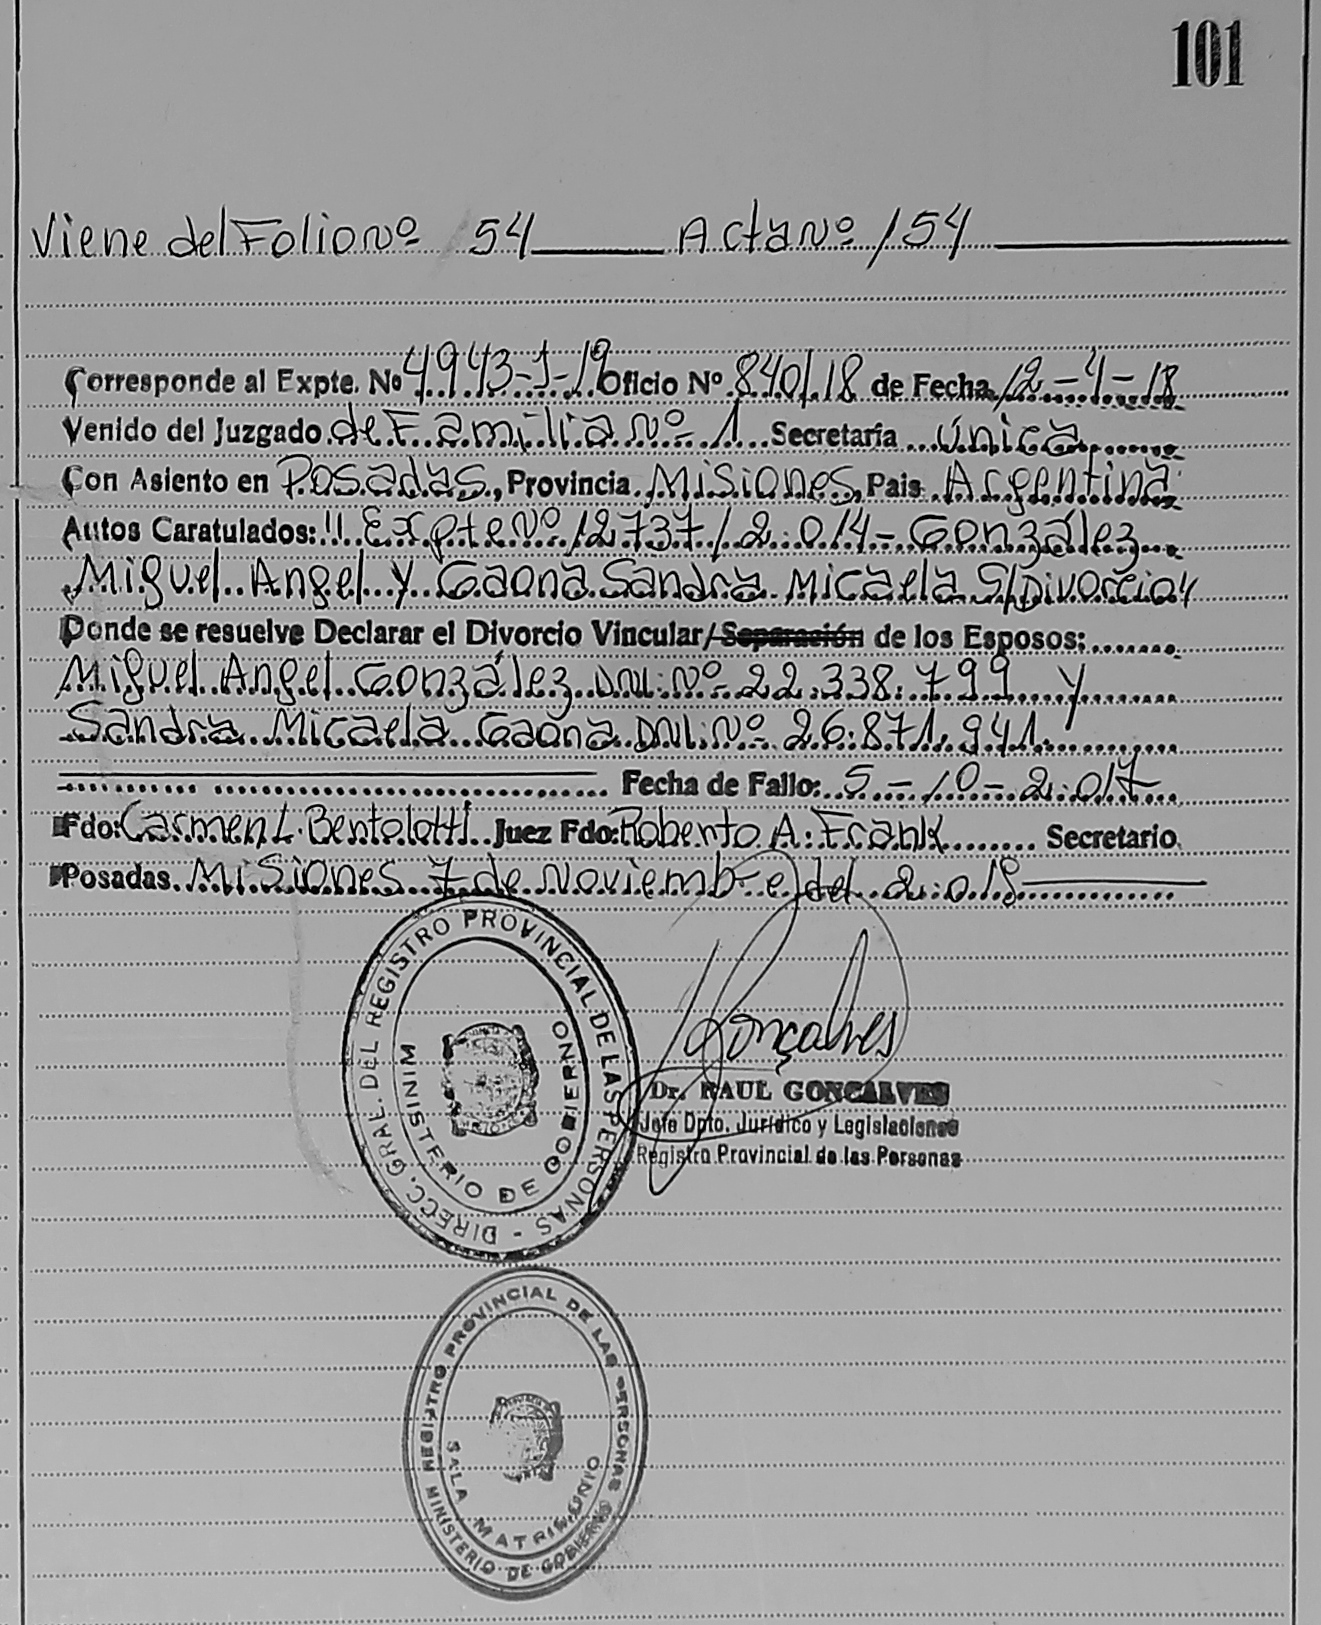 101
Viene del Folio Nº 154 Acta Nº 154
Corresponde al Expte. Nº 4943-1-19 Oficio Nº 840/18 de Fecha 12-4-18
Venido del Juzgado de Familia Nº 1 Secretaría única
Con Asiento en Posadas, Provincia Misiones, Pais Argentina
Autos Caratulados: "Expte Nº 12737/2.014- González
Miguel Angel y Gaona Sandra Micaela S/Divorcio"
Donde se resuelve Declarar el Divorcio Vincular/Separación de los Esposos:
Miguel Angel González DNI: Nº 22.338.799 y
Sandra Micaela Gaona DNI: Nº 26.871.941.
Fecha de Fallo: 5-10-2.017
Fdo: Carmen L. Bentolotti Juez Fdo: Roberto A. Frank Secretario
Posadas Misiones 7 de Noviembre del 2.018
DIRECC. GRAL. DEL REGISTRO PROVINCIAL DE LAS PERSONAS -
MINISTERIO DE GOBIERNO
Gonçalves
Dr. RAUL GONCALVES
Jefe Dpto. Jurídico y Legislaciones
Registro Provincial de las Personas
REGISTRO PROVINCIAL DE LAS PERSONAS
MINISTERIO DE GOBIERNO
SALA MATRIMONIO